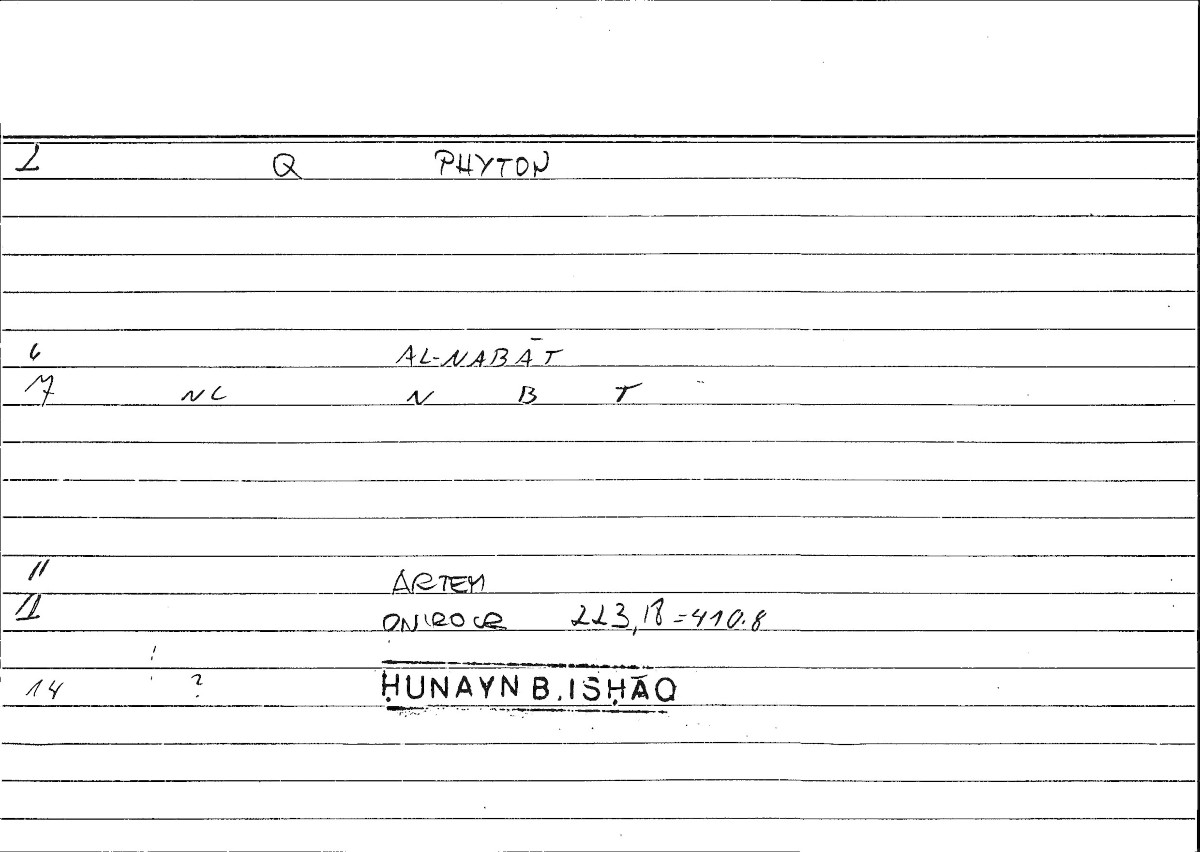 1 Q PHYTON
6 AL-NABĀT
7 NC N B T
11 ARTEM
12 ONIROCR 223,18=410.8
14 ? ḤUNAYN B. ISḤĀQ